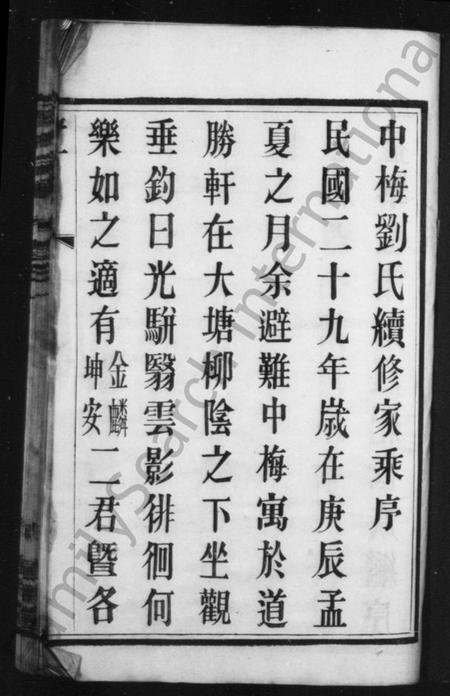 中梅劉氏續修家乘序
民國二十九年歲在庚辰孟
夏之月余避難中梅寓於道
勝軒在大塘柳陰之下坐觀
垂鈞日光駢翳雲影徘徊何
樂如之適有金麟坤安二君曁各
FamilySearch International